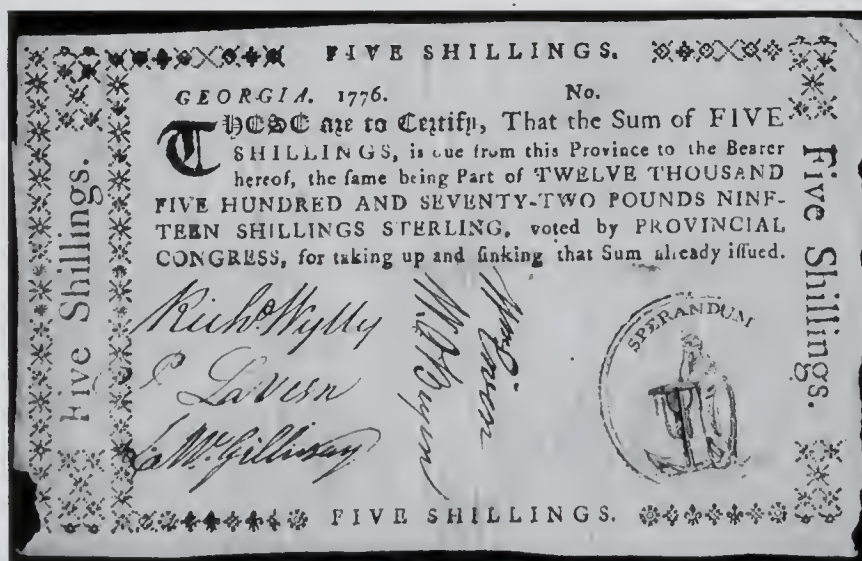 FIVE SHILLINGS.
GEORGIA. 1776. No.
THESE are to Certify, That the Sum of FIVE
SHILLINGS, is due from this Province to the Bearer
hereof, the same being Part of TWELVE THOUSAND
FIVE HUNDRED AND SEVENTY-TWO POUNDS NINE-
TEEN SHILLINGS STERLING, voted by PROVINCIAL
CONGRESS, for taking up and sinking that Sum already issued.
Five Shillings.
Five Shillings.
Richd Wylly
Lavern
McGillivray
SPERANDUM
FIVE SHILLINGS.